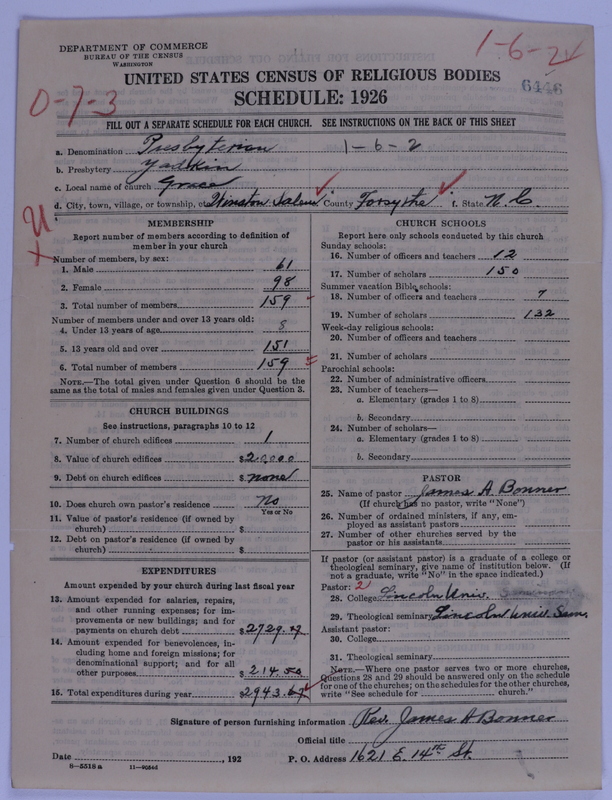 DEPARTMENT OF COMMERCE
BUREAU OF THE CENSUS
WASHINGTON
1-6-24
6446
UNITED STATES CENSUS OF RELIGIOUS BODIES
0-7-3
SCHEDULE: 1926
FILL OUT A SEPARATE SCHEDULE FOR EACH CHURCH. SEE INSTRUCTIONS ON THE BACK OF THIS SHEET
a. Denomination Presbyterian 1-6-2
b. Presbytery Yadkin
c. Local name of church Grace
d. City, town, village, or township, or Winston Salem County Forsythe f. State N.C.
U
x
MEMBERSHIP
Report number of members according to definition of member in your church
Number of members, by sex:
1. Male 61
2. Female 98
3. Total number of members 159
Number of members under and over 13 years old:
4. Under 13 years of age 8
5. 13 years old and over 151
6. Total number of members 159
NOTE.—The total given under Question 6 should be the same as the total of males and females given under Question 3.
CHURCH BUILDINGS
See instructions, paragraphs 10 to 12
7. Number of church edifices 1
8. Value of church edifices $20,000
9. Debt on church edifices $none
10. Does church own pastor's residence no
Yes or No
11. Value of pastor's residence (if owned by church) $
12. Debt on pastor's residence (if owned by church) $
EXPENDITURES
Amount expended by your church during last fiscal year
13. Amount expended for salaries, repairs, and other running expenses; for improvements or new buildings; and for payments on church debt $2729.17
14. Amount expended for benevolences, including home and foreign missions; for denominational support; and for all other purposes $214.50
15. Total expenditures during year $2943.67
CHURCH SCHOOLS
Report here only schools conducted by this church
Sunday schools:
16. Number of officers and teachers 12
17. Number of scholars 150
Summer vacation Bible schools:
18. Number of officers and teachers 7
19. Number of scholars 132
Week-day religious schools:
20. Number of officers and teachers
21. Number of scholars
Parochial schools:
22. Number of administrative officers
23. Number of teachers—
a. Elementary (grades 1 to 8)
b. Secondary
24. Number of scholars—
a. Elementary (grades 1 to 8)
b. Secondary
PASTOR
25. Name of pastor James A Bonner
(If church has no pastor, write "None")
26. Number of ordained ministers, if any, employed as assistant pastors
27. Number of other churches served by the pastor or his assistants
If pastor (or assistant pastor) is a graduate of a college or theological seminary, give name of institution below. (If not a graduate, write "No" in the space indicated.)
Pastor: 2
28. College Lincoln Univ.
29. Theological seminary Lincoln Univ Sem.
Assistant pastor:
30. College
31. Theological seminary
NOTE.—Where one pastor serves two or more churches, Questions 28 and 29 should be answered only on the schedule for one of the churches; on the schedules for the other churches, write "See schedule for church."
Signature of person furnishing information Rev. James A Bonner
Official title
Date , 192 P. O. Address 1621 E. 14th St.
8—5518a 11—9054d